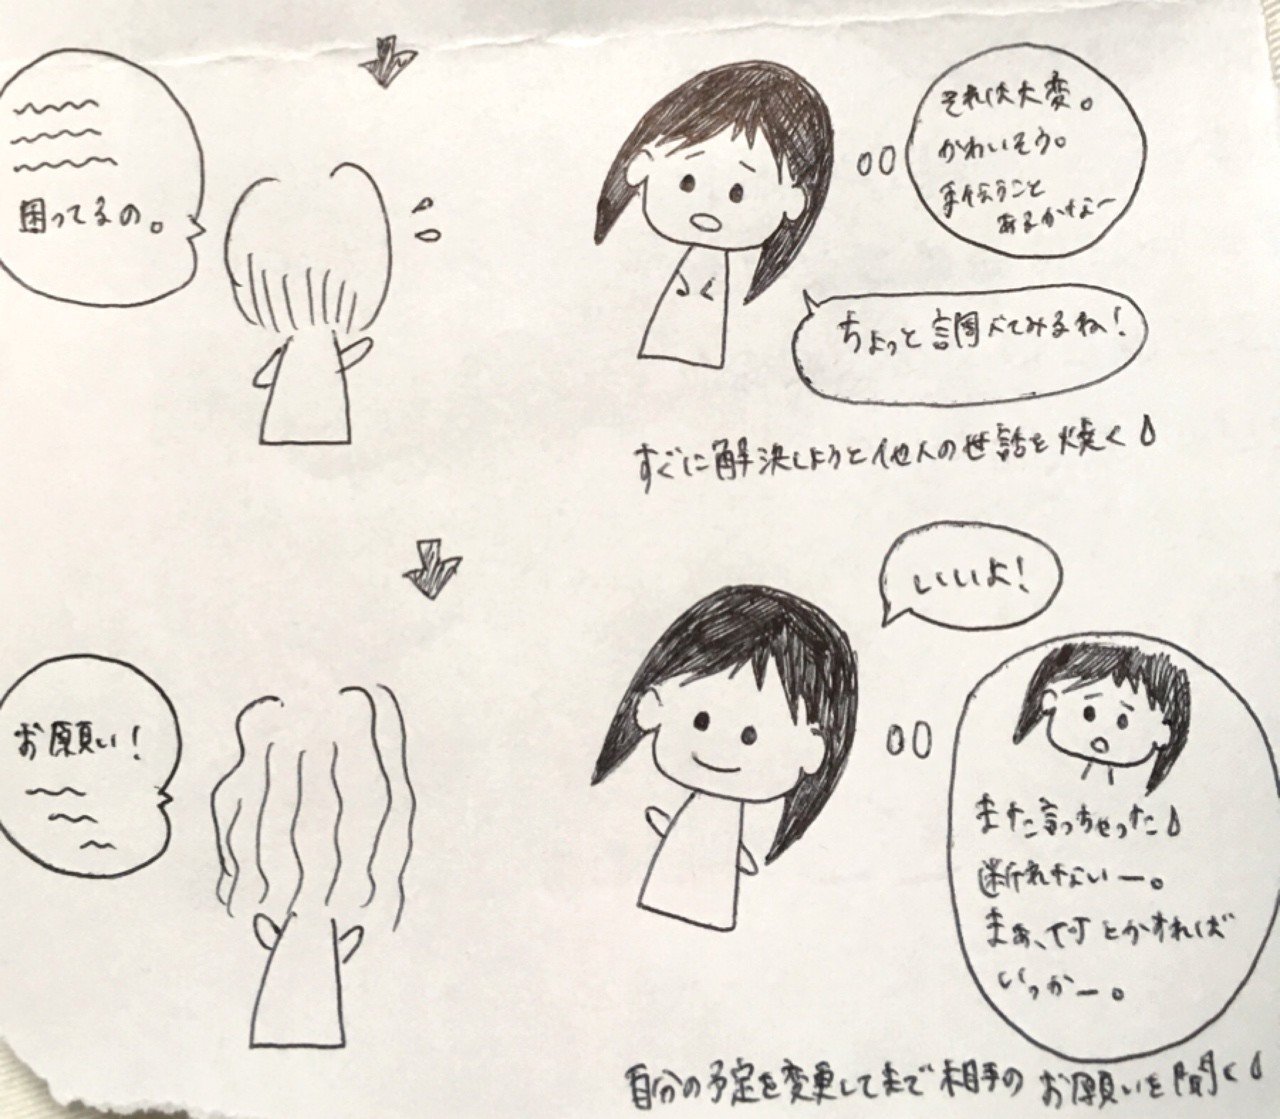 困ってるの。
それは大変。
かわいそう。
手伝うこと
あるかなー
ちょっと調べてみるね!
すぐに解決しようと他人の世話を焼く
いいよ!
お願い!
また言っちゃった
断れないー。
まぁ、何とかすれば
いっかー。
自分の予定を変更してまで相手のお願いを聞く